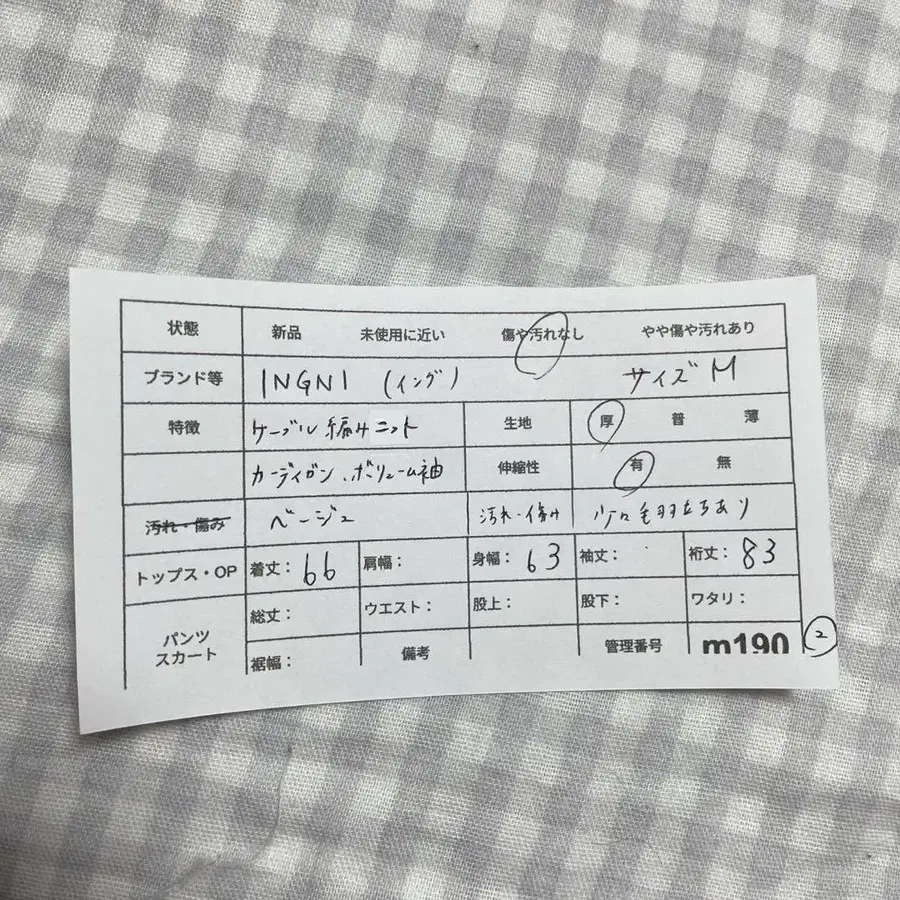 状態 新品 未使用に近い 傷や汚れなし やや傷や汚れあり
ブランド等 INGNI (イング) サイズM
特徴 ケーブル編みニット 生地 厚 普 薄
カーディガン、ボリューム袖 伸縮性 有 無
汚れ・傷み ベージュ 汚れ・傷み 少々毛羽立ちあり
トップス・OP 着丈: 66 肩幅: 身幅: 63 袖丈: 裄丈: 83
パンツ スカート 総丈: ウエスト: 股上: 股下: ワタリ:
裾幅: 備考 管理番号 m190 ②